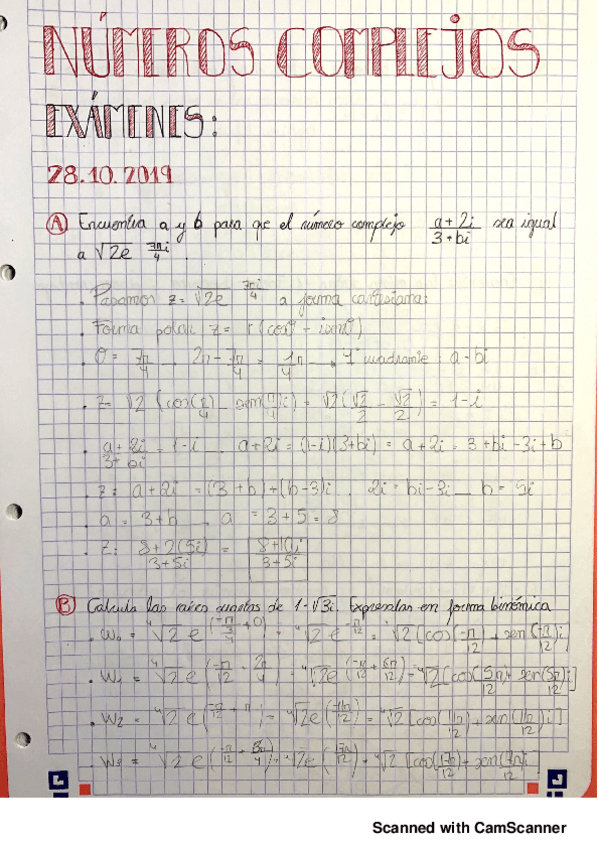 NÚMEROS COMPLEJOS
EXÁMENES:
28.10.2019
A Encuentra a y b para qe el número complejo a+2i / 3+bi sea igual
a √2e 7πi/4
. Pasamos z= √2e 7πi/4 a forma cartesiana:
. Forma polar: z= r(cosθ - isenθ)
. θ= 7π/4 2π-7π/4 = 1π/4 cuadrante: a-bi
. z= √2 (cos(π/4) - sen(π/4)i) = √2(√2/2 - √2/2) = 1-i
. a+2i / 3+bi = 1-i a+2i = (1-i)(3+bi) = a+2i = 3+bi-3i+b
. z: a+2i = (3+b)+(b-3)i 2i = bi-3i b=5i
. a = 3+b a = 3+5=8
. z: 8+2(5i) / 3+5i = 8+10i / 3+5i
B Calcula las raíces cuartas de 1-√3i. Expresalas en forma binómica
. W₀ = ⁴√2 e = ⁴√2 e -π/12 = ⁴√2 [cos(-π/12) + sen(-π/12)i]
. W₁ = ⁴√2 e = ⁴√2 e (-π/12 + 6π/12) = ⁴√2 [cos(5π/12) + sen(5π/12)i]
. W₂ = ⁴√2 e (-π/12 + π) = ⁴√2 e (11π/12) = ⁴√2 [cos(11π/12) + sen(11π/12)i]
. ⁴√2 e = ⁴√2 e = ⁴√2
Scanned with CamScanner